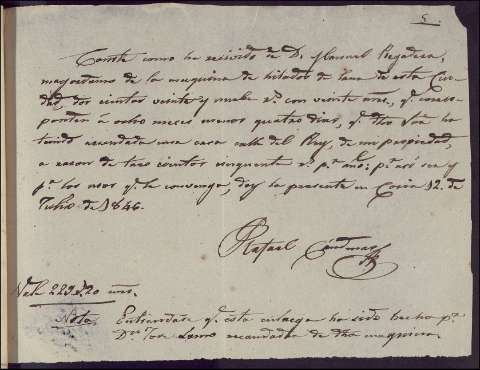 5.
Conste como he recivido de D. Manuel Pegadera,
mayordomo de la maquina de hilados de lana de esta Ciu-
dad, dos cientos veinte y nuebe r.s con veinte mrs, q.e corres-
ponden á ocho meses menos quatro dias, q.e dho Señ.r ha
tenido arrendada una casa calle del Rey, de mi propiedad,
a razon de tres cientos cinquenta r.s p.r año; p.a asi sea y
p.a los usos q.e le convenga, doy la presente en Coria 12. de
Julio de 1846.
Rafael
Vale 229 r.s 20 mrs.
Nota. Entiendase q.e esta entrega ha sido hecho p.r
D.n Jose recaudador de dha maquina.